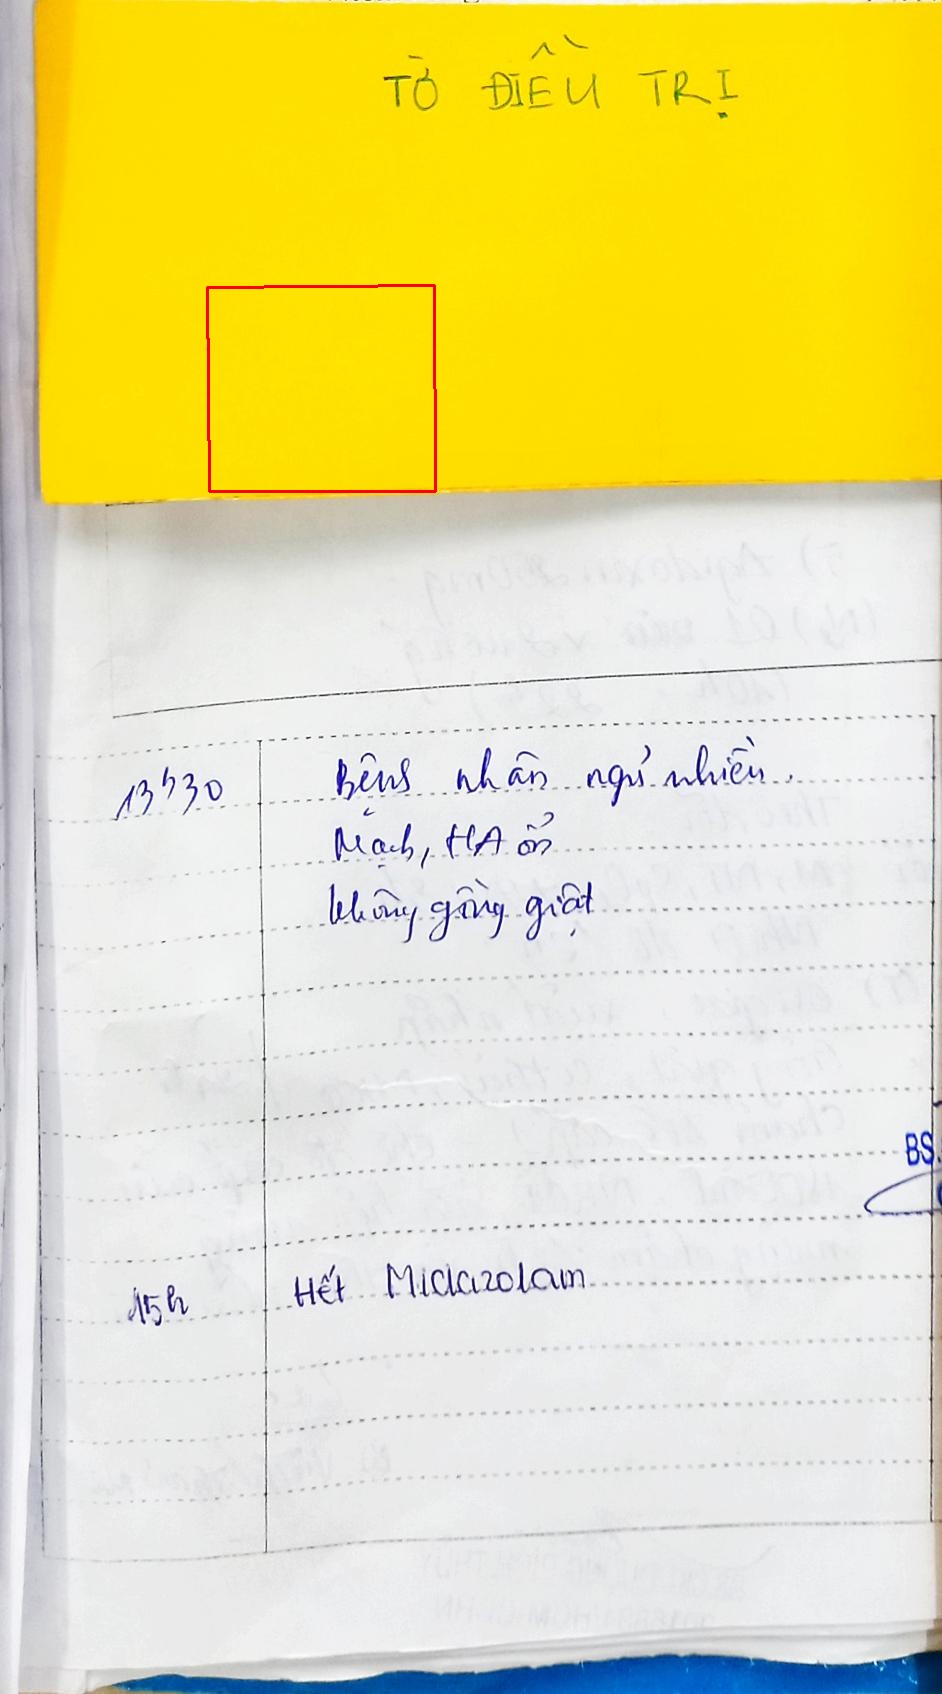 TỜ ĐIỀU TRỊ
13h30 Bệnh nhân ngủ nhiều.
Mạch, HA ổn
không gồng giật
BS.
15h Hết Midazolam